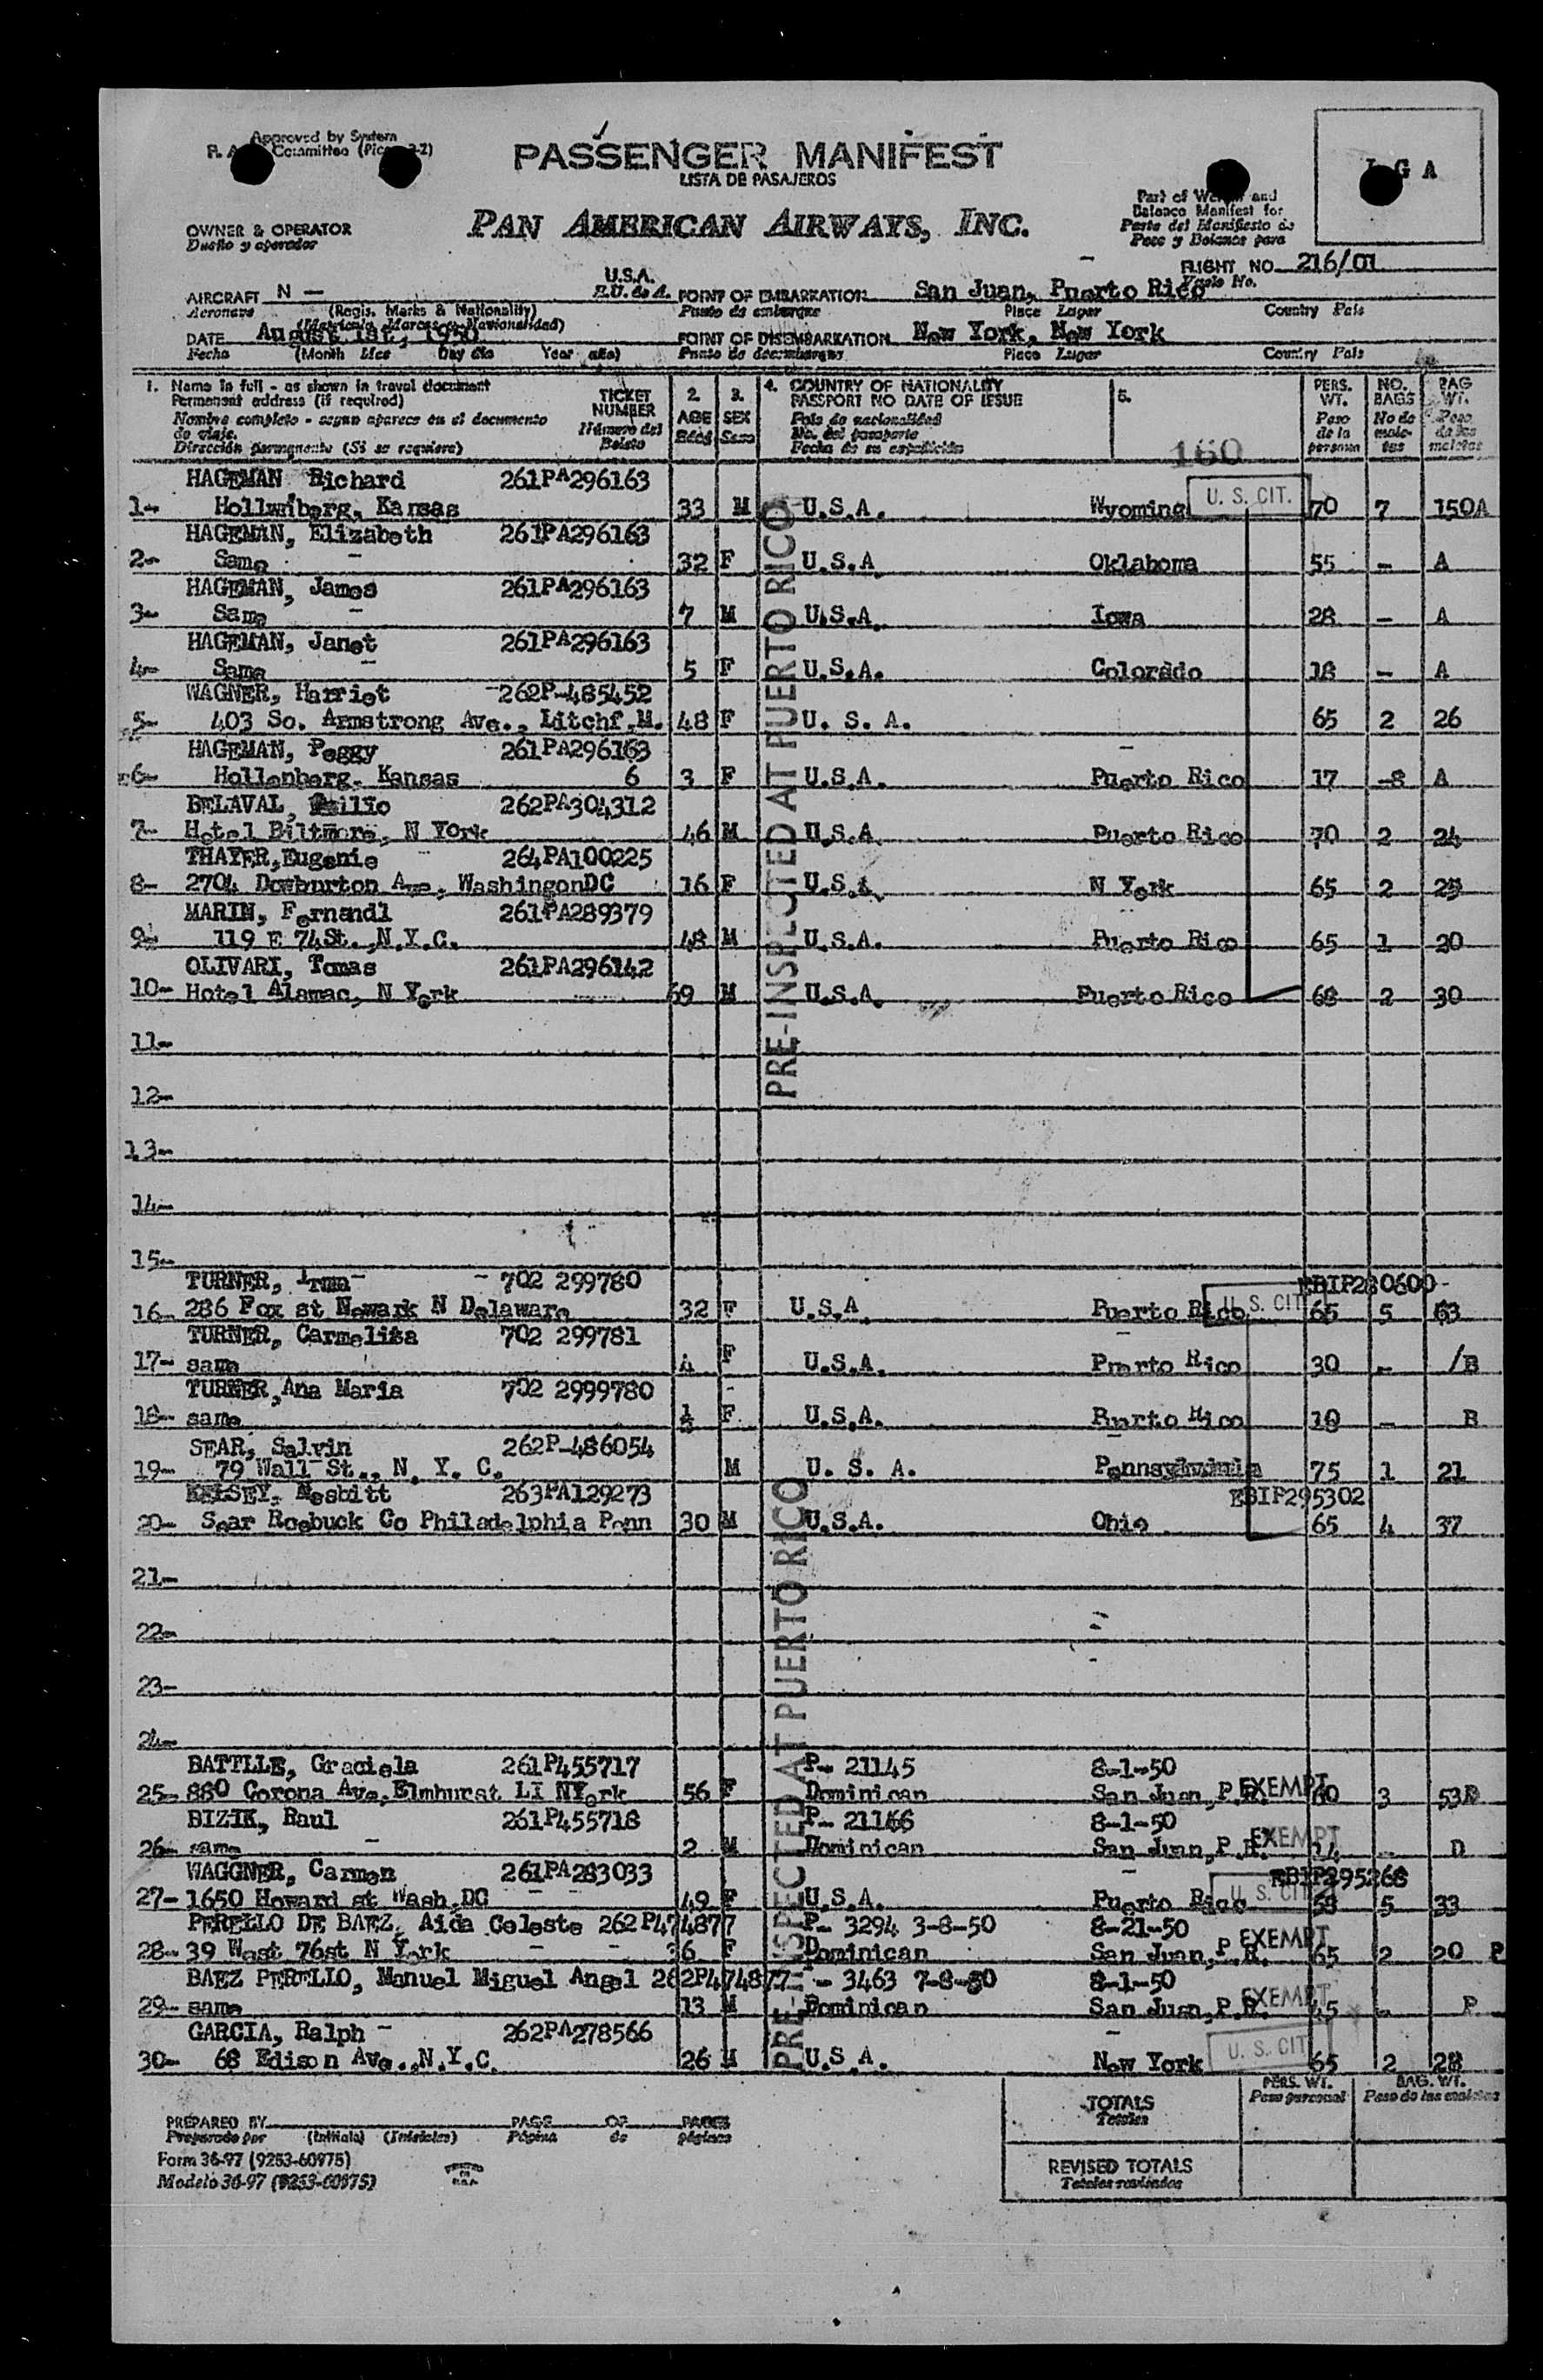 Approved by System
Committee
PASSENGER MANIFEST
LISTA DE PASAJEROS
G A
Part of and
Balance Manifest for
Parte del Manifiesto de
Peso y Balance para
OWNER & OPERATOR
Dueño y operador
PAN AMERICAN AIRWAYS, INC.
FLIGHT NO 216/01
Vuelo No.
U.S.A.
E.U. de A.
AIRCRAFT N —
Aeronave
(Regis. Marks & Nationality)
POINT OF EMBARKATION San Juan, Puerto Rico
Punto de embarque
Place Lugar
Country País
DATE August 1st,
Fecha
(Month Mes Day día Year año)
POINT OF DISEMBARKATION New York, New York
Punto de desembarque
Place Lugar
Country País
1. Name in full - as shown in travel document
Permanent address (if required)
Nombre completo - segun aparece en el documento
de viaje.
Dirección permanente (Si se requiere)
TICKET
NUMBER
Número del
Boleto
2.
AGE
Edad
3.
SEX
Sexo
4. COUNTRY OF NATIONALITY
PASSPORT NO DATE OF ISSUE
País de nacionalidad
No. del pasaporte
Fecha de su expedición
5.
160
PERS.
WT.
Peso
de la
persona
NO.
BAGS
No de
male-
tas
BAG
WT.
Peso
de las
maletas
PRE-INSPECTED AT PUERTO RICO
HAGEMAN Richard 261PA296163
1- Kansas 33 M U.S.A. Wyoming U. S. CIT. 70 7 150A
HAGEMAN, Elizabeth 261PA296163
2- Same - 32 F U.S.A Oklahoma 55 - A
HAGEMAN, James 261PA296163
3- Same - 7 M U.S.A. Iowa 28 - A
HAGEMAN, Janet 261PA296163
4- Same - 5 F U.S.A. Colorado 18 - A
WAGNER, Harriet 262P-485452
5- 403 So. Armstrong Ave., Litchf.M. 48 F U. S. A. 65 2 26
HAGEMAN, Peggy 261PA296163
6- Hollenberg. Kansas 6 3 F U.S.A. Puerto Rico 17 A
BELAVAL, 262PA304312
7- Hotel Biltmore, N York 46 M U.S.A Puerto Rico 70 2 24
THAYER,Eugenie 264PA100225
8- 2704 Dowburton Ave, WashingonDC 16 F U.S.A. N York 65 2
MARIN, Fernandl 261PA289379
9- 119 E 74St. ,N.Y.C. 48 M U.S.A. Puerto Rico 65 1 20
OLIVARI, Tomas 261PA296142
10- Hotel Alamac, N York 69 M U.S.A. Puerto Rico 68 2 30
11-
12-
13-
14-
15-
TURNER, Irma 702 299780 EBIP280600
16- 286 Fox st Newark N Delaware 32 F U.S.A Puerto Rico U. S. CIT 65 5 63
TURNER, Carmelita 702 299781
17- same 4 F U.S.A. Puerto Rico 30 - /B
TURNER,Ana Maria 702 2999780
18- same F U.S.A. Puerto Rico 10 - B
SEAR, Salvin 262P-486054
19- 79 Wall St., N. Y. C. M U. S. A. 75 1 21
KELSEY, Nesbitt 263PA129273 EBIP295302
20- Sear Roebuck Co Philadelphia Penn 30 M U.S.A. Ohio 65 4 37
21-
22-
23-
24-
PRE-INSPECTED AT PUERTO RICO
BATTLLE, Graciela 261P455717 P- 21145 8-1-50
25- 880 Corona Ave,Elmhurst LI NYork 56 F Dominican San Juan,P.R. EXEMPT 60 3 53D
BIZIK, Raul 261P455718 P- 21166 8-1-50
26- same - 2 M Dominican San Juan,P.R. EXEMPT 14 - D
WAGGNER, Carmen 261PA283033 EBIP295268
27- 1650 Howard st Wash,DC 49 F U.S.A. Puerto Rico U. S. CIT 58 5 33
PERELLO DE BAEZ, Aida Celeste 262P474877 P- 3294 3-8-50 8-21-50
28- 39 West 76st N York 36 F Dominican San Juan, P.R. EXEMPT 65 2 20 P
BAEZ PERELLO, Manuel Miguel Angel 262P474877 - 3463 7-8-50 8-1-50
29- same 13 M Dominican San Juan,P.R. EXEMPT 45 - P
GARCIA, Ralph - 262PA278566
30- 68 Edison Ave.,N.Y.C. 26 M U.S A. New York U. S. CIT 65 2 28
TOTALS
Totales
PERS. WT.
Peso personal
BAG. WT.
Peso de las maletas
REVISED TOTALS
Totales revisados
PREPARED BY
Preparado por
(Initials) (Iniciales)
PAGE OF PAGES
Página de páginas
Form 36-97 (9253-60975)
Modelo 36-97 (9253-60975)